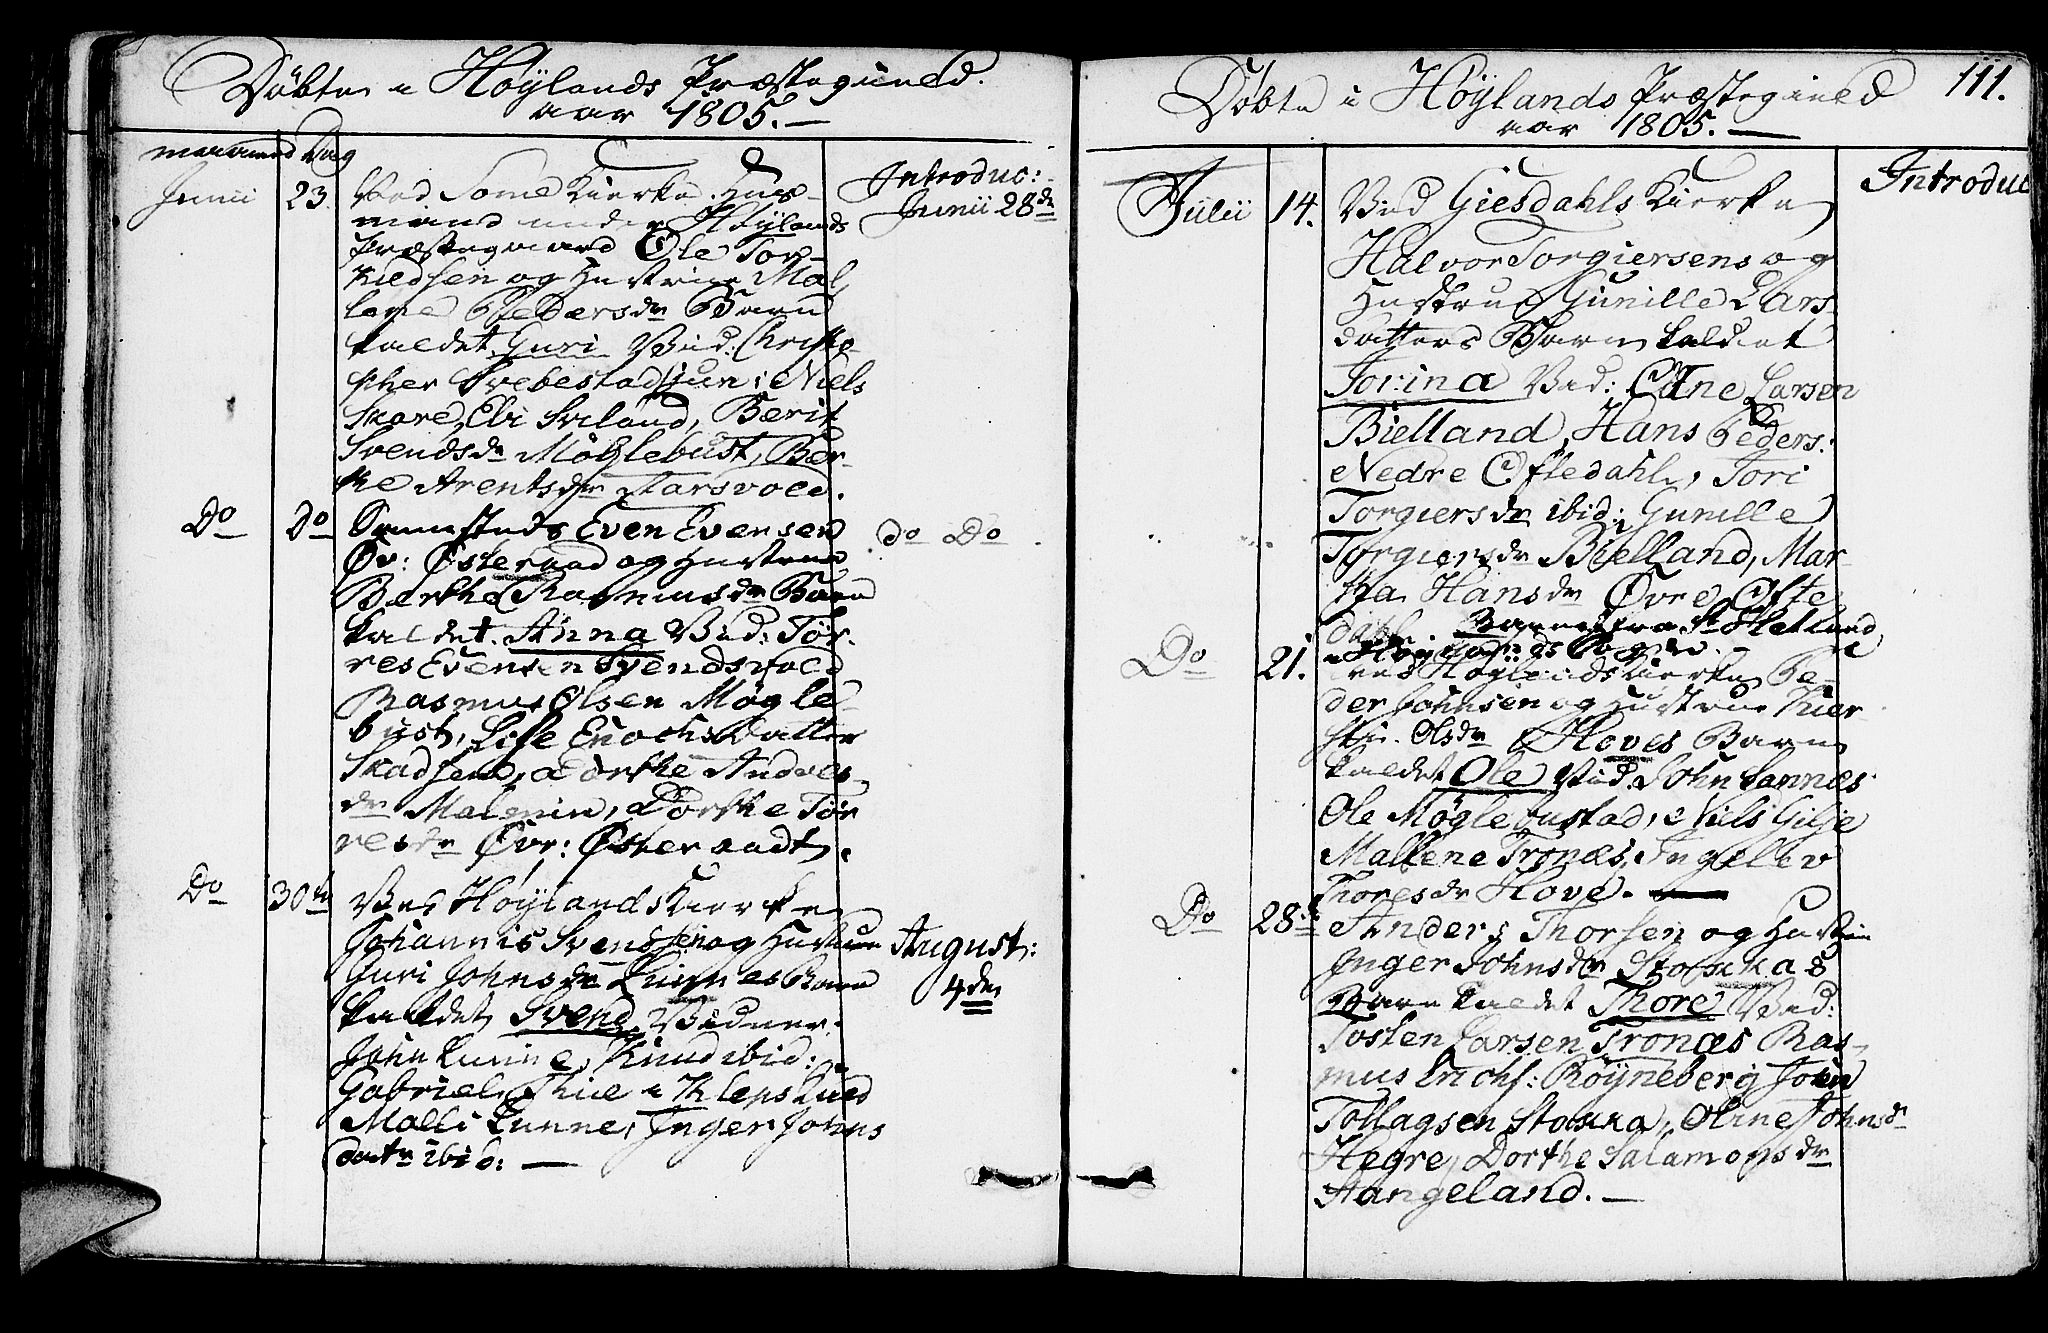 Døbte i Høylands Præstegield
aar 1805. —
maaned Dag
Introduc:
Junii 23. Ved Some Kierke. Huus-
Junii 28de
mand under Høylands
Præstegaard Ole Tor-
kildsen og Hustrue Mal-
lene Pedersdr Barn
kaldet Guri Vid: Christo-
pher Svebestad jun: Niels
Skare, Eli Sviland, Berit
Svendsdr Møglebust, Ber-
the Arentsdr Aarsvold.
Do Do Sammesteds Even Evensen
do Do
Øv: Østeraad og Hustrue
Berthe Rasmusdr Barn
kaldet Anna Vid: Tør-
res Evensen Svendsvold
Rasmus Olsen Møgle-
bust, Lisse Enochsdatter
Skadsem, Dorthe Andres-
dr Malmin, Dorthe Tør
resdr Øvr: Østeraadt.
Do 30te Ved Høylands Kierke
Johannis Svendsen og Hustrue
August:
Guri Johnsdr Lunnes Barn
4den
kaldet Svend. Vidner.
John Lunne, Knud ibid:
Gabriel Thiie i Kleps Sued
Malli Lunne, Inger Johns
datr ibid: —
Døbte i Høylands Præstegield 111.
aar 1805. —
Introduc
Julii 14. Ved Giesdahls Kierke
Halvor Torgiersens og
Hustrue Gunille Lars
datters Barn kaldet
Torina Vid: Ane Larsen
Bielland, Hans Peders:
Nedre Oftedahl, Tori
Torgiersdr ibid: Gunille
Torgiersdr Bielland, Mar-
tha Hansdr Øvre Ofte
dahl. Barnet fra St Hetland
i Høylands Sogn.
Do 21. ved Høylands Kierke Pe-
der Johnsen og Hustrue Kier-
stie Olsdr Hoves Barn
kaldet Ole Vid. John Sannæs
Ole Møglebustad, Niels Gilje
Mallene Tronæs, Ingellev
Thoresdr Hove. —
Do 28de Anders Thorsen og Hustrue
Inger Johnsdr Stokkas
Barn kaldet Thore Vid:
Tosten Larsen Tronæs Ras-
mus Erichs: Røyneberg John
Tollagsen Stokka, Oline Johnsdr
Hegre, Dorthe Salamonsdr
Stangeland. —